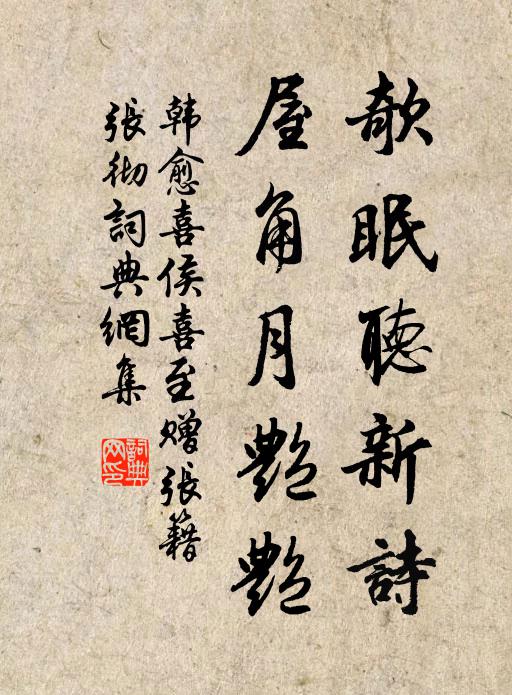 欹眠聽新詩
屋角月艷艷
韩愈喜侯喜至赠張籍
張彻詞典網集
詞典网印